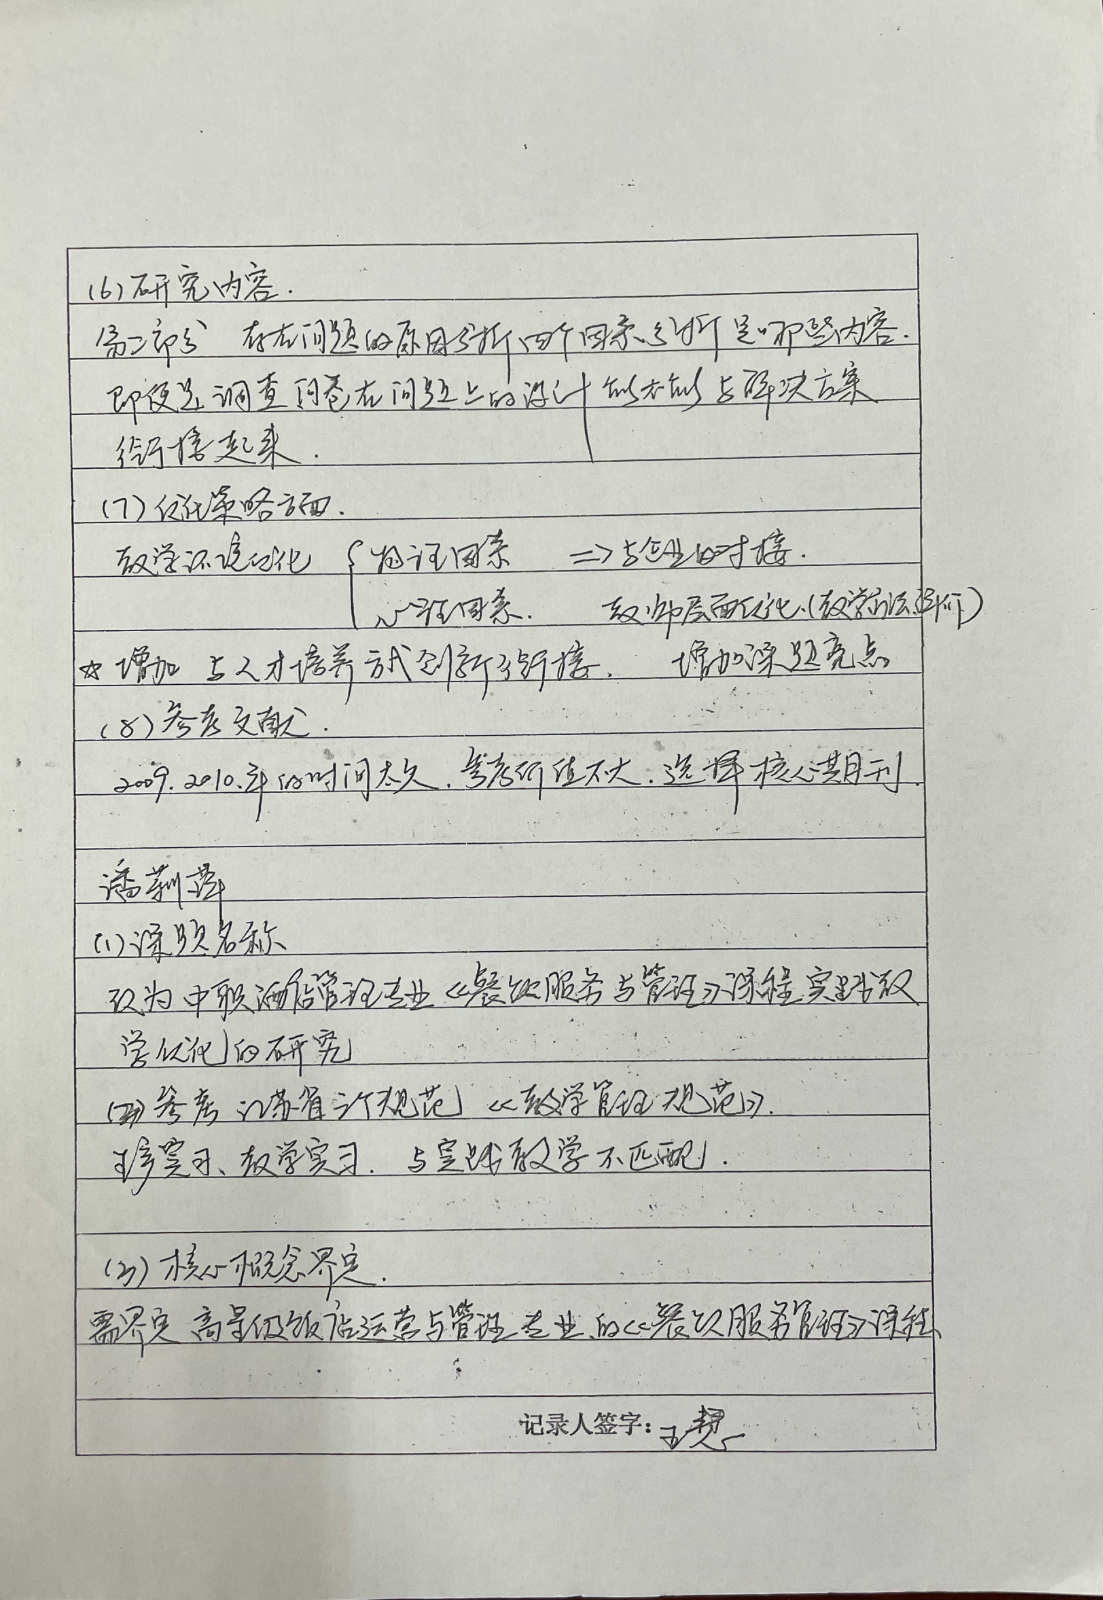 (6) 研究内容.
第二部分 存在问题的原因分析,四个因素,分析是哪些内容.
即使是调查问卷在问题上的设计 能不能与解决方案
衔接起来.
(7) 优化策略方面.
教学环境优化 { 物理因素 => 与企业的对接.
心理因素. 教师层面优化.(教学方法
☆ 增加 与人才培养方式创新衔接. 增加课题亮点
(8) 参考文献.
2009. 2010.年的时间太久. 参考价值不大. 选择核心期刊.
潘莉萍
(1) 课题名称
改为 中职酒店管理专业《餐饮服务与管理》课程实践教
学优化的研究
(2) 参考 江苏省 规范《教学管理规范》.
实习、教学实习. 与实践教学不匹配.
(3) 核心概念界定.
需界定 高星级饭店运营与管理专业的《餐饮服务管理》课程.
记录人签字: 王